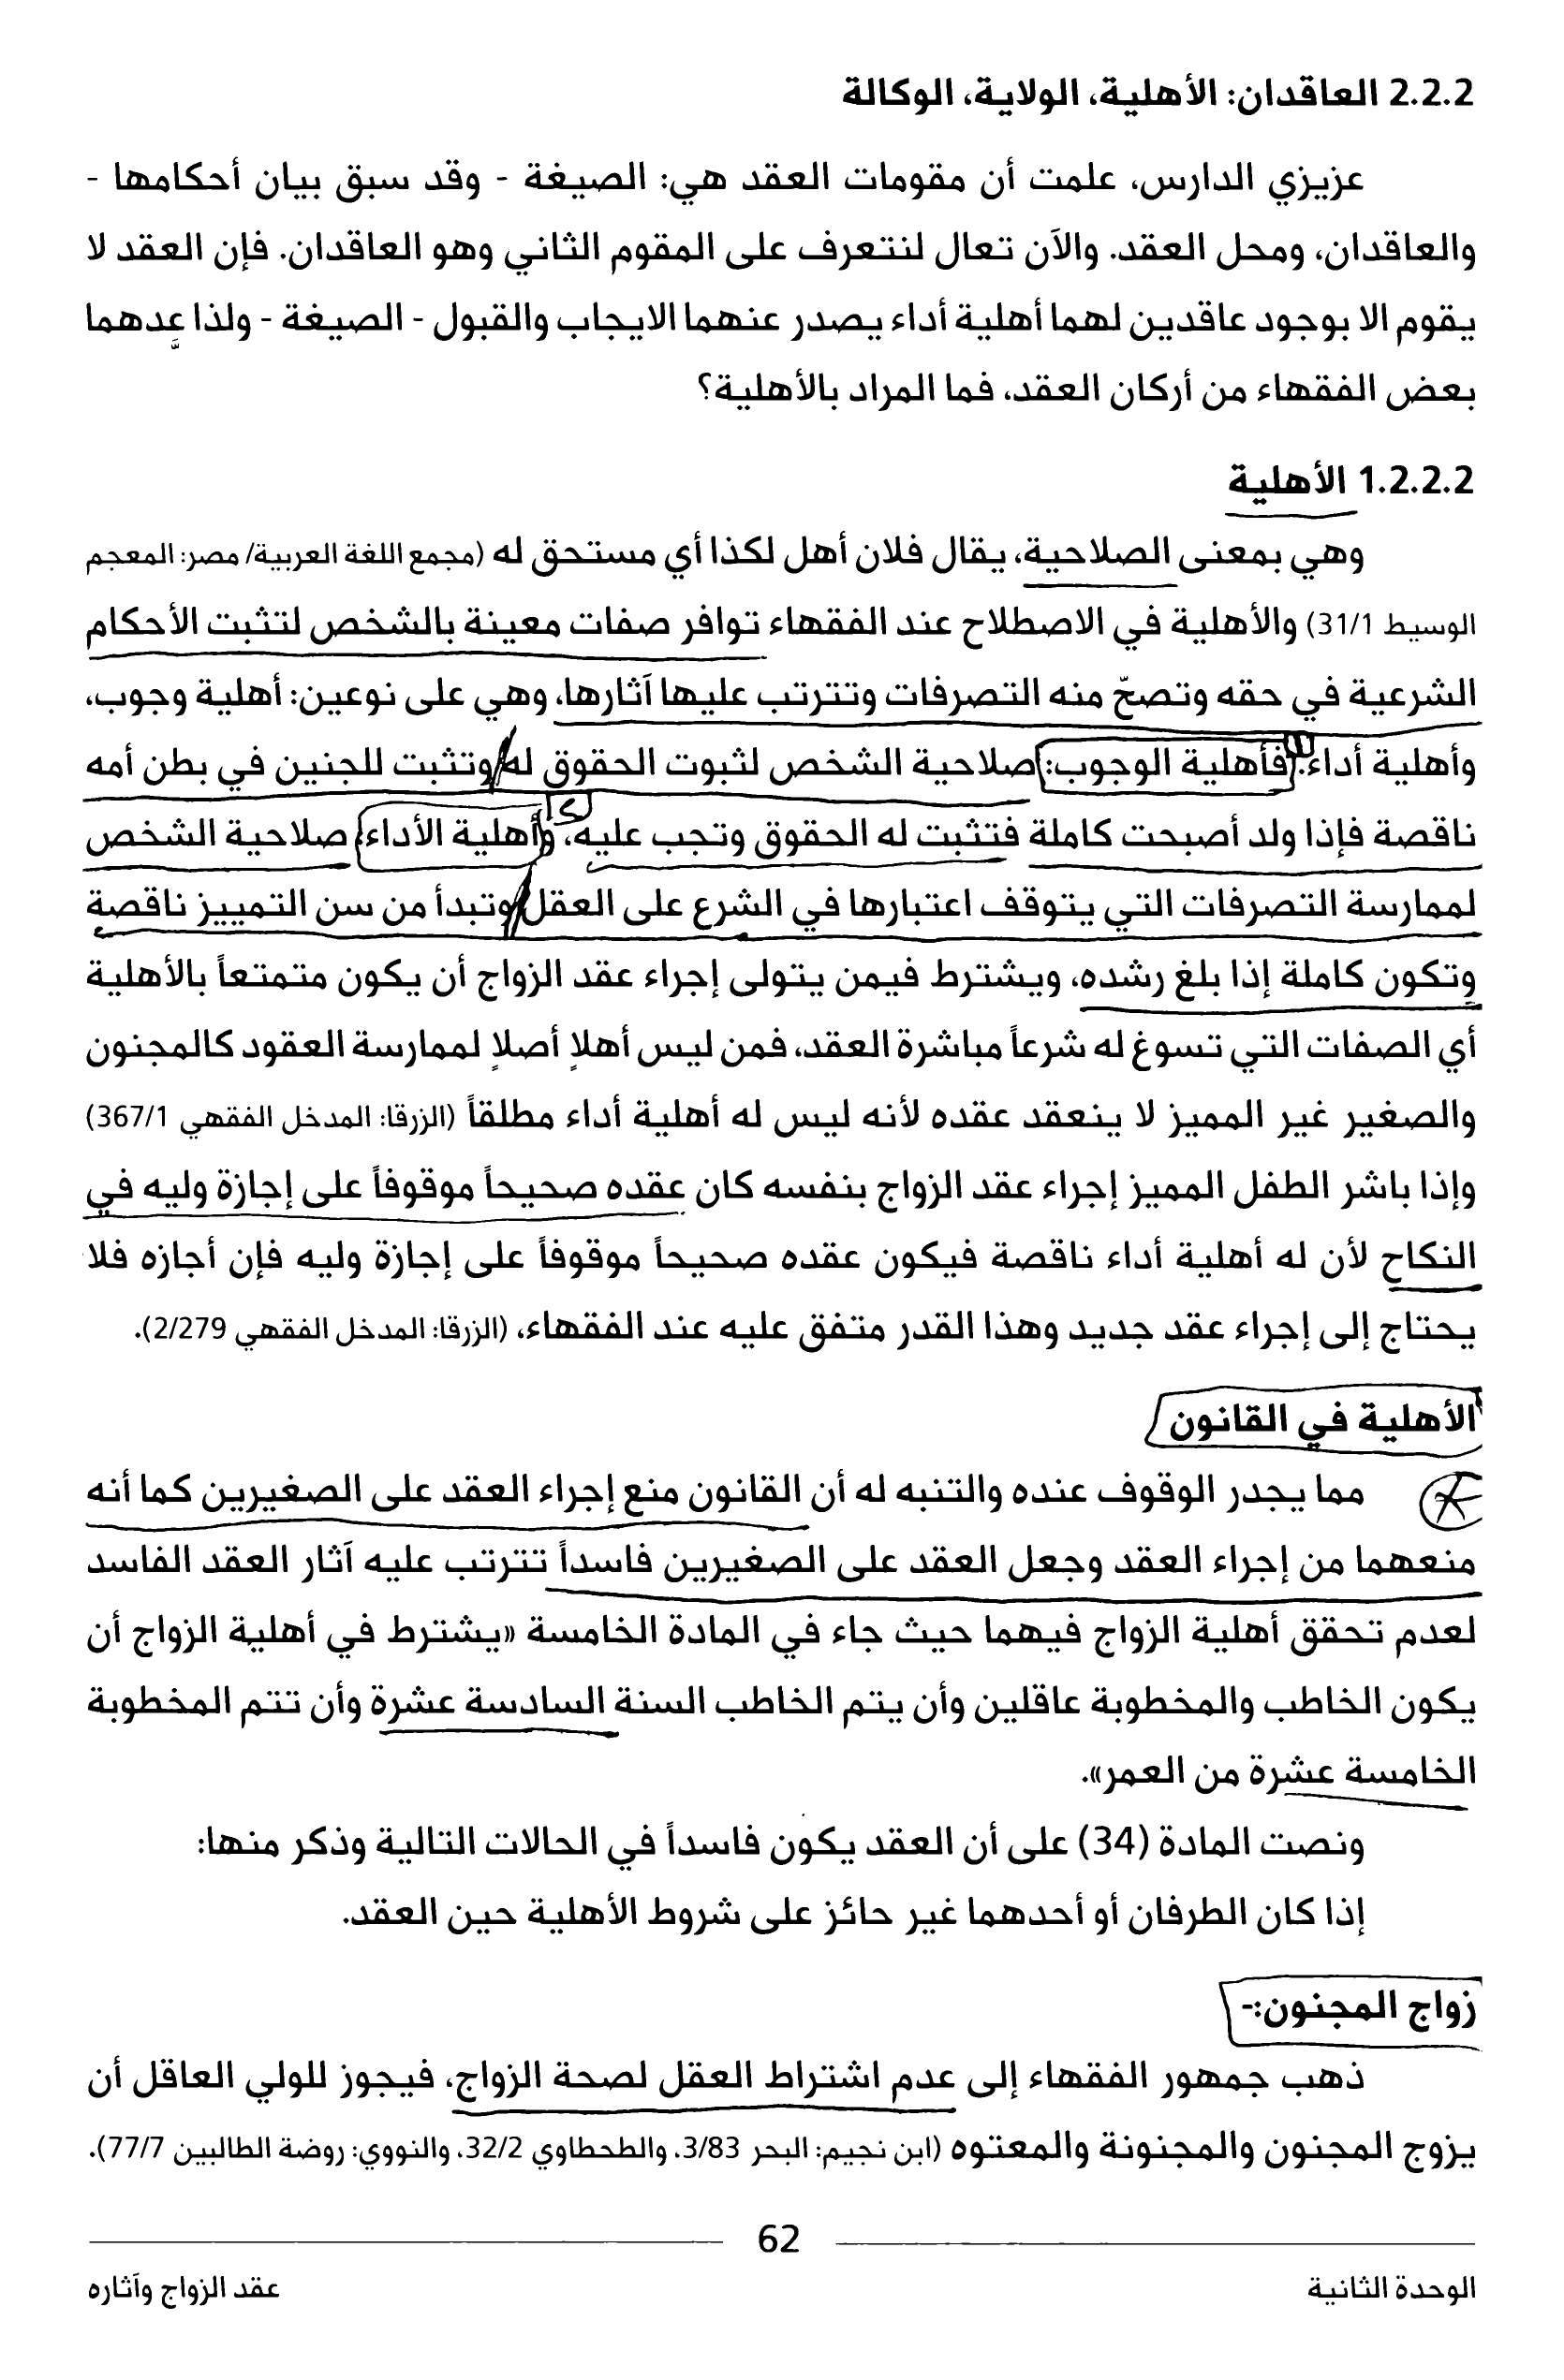 2.2.2 العاقدان: الأهلية، الولاية، الوكالة
عزيزي الدارس، علمت أن مقومات العقد هي: الصيغة - وقد سبق بيان أحكامها -
والعاقدان، ومحل العقد. والآن تعال لنتعرف على المقوم الثاني وهو العاقدان. فإن العقد لا
يقوم الا بوجود عاقدين لهما أهلية أداء يصدر عنهما الايجاب والقبول - الصيغة - ولذا عدهما
بعض الفقهاء من أركان العقد، فما المراد بالأهلية؟
1.2.2.2 الأهلية
وهي بمعنى الصلاحية، يقال فلان أهل لكذا أي مستحق له (مجمع اللغة العربية/ مصر: المعجم
الوسيط 31/1) والأهلية في الاصطلاح عند الفقهاء توافر صفات معينة بالشخص لتثبت الأحكام
الشرعية في حقه وتصحّ منه التصرفات وتترتب عليها آثارها، وهي على نوعين: أهلية وجوب،
وأهلية أداء. فأهلية الوجوب: صلاحية الشخص لثبوت الحقوق له وتثبت للجنين في بطن أمه
ناقصة فإذا ولد أصبحت كاملة فتثبت له الحقوق وتجب عليه، وأهلية الأداء: صلاحية الشخص
لممارسة التصرفات التي يتوقف اعتبارها في الشرع على العقل وتبدأ من سن التمييز ناقصة
وتكون كاملة إذا بلغ رشده، ويشترط فيمن يتولى إجراء عقد الزواج أن يكون متمتعاً بالأهلية
أي الصفات التي تسوغ له شرعاً مباشرة العقد، فمن ليس أهلاٍ أصلاٍ لممارسة العقود كالمجنون
والصغير غير المميز لا ينعقد عقده لأنه ليس له أهلية أداء مطلقاً (الزرقا: المدخل الفقهي 367/1)
وإذا باشر الطفل المميز إجراء عقد الزواج بنفسه كان عقده صحيحاً موقوفاً على إجازة وليه في
النكاح لأن له أهلية أداء ناقصة فيكون عقده صحيحاً موقوفاً على إجازة وليه فإن أجازه فلا
يحتاج إلى إجراء عقد جديد وهذا القدر متفق عليه عند الفقهاء، (الزرقا: المدخل الفقهي 2/279).
الأهلية في القانون
مما يجدر الوقوف عنده والتنبه له أن القانون منع إجراء العقد على الصغيرين كما أنه
منعهما من إجراء العقد وجعل العقد على الصغيرين فاسداً تترتب عليه آثار العقد الفاسد
لعدم تحقق أهلية الزواج فيهما حيث جاء في المادة الخامسة «يشترط في أهلية الزواج أن
يكون الخاطب والمخطوبة عاقلين وأن يتم الخاطب السنة السادسة عشرة وأن تتم المخطوبة
الخامسة عشرة من العمر».
ونصت المادة (34) على أن العقد يكون فاسداً في الحالات التالية وذكر منها:
إذا كان الطرفان أو أحدهما غير حائز على شروط الأهلية حين العقد.
زواج المجنون:-
ذهب جمهور الفقهاء إلى عدم اشتراط العقل لصحة الزواج، فيجوز للولي العاقل أن
يزوج المجنون والمجنونة والمعتوه (ابن نجيم: البحر 3/83، والطحطاوي 32/2، والنووي: روضة الطالبين 77/7).
62
الوحدة الثانية
عقد الزواج وآثاره